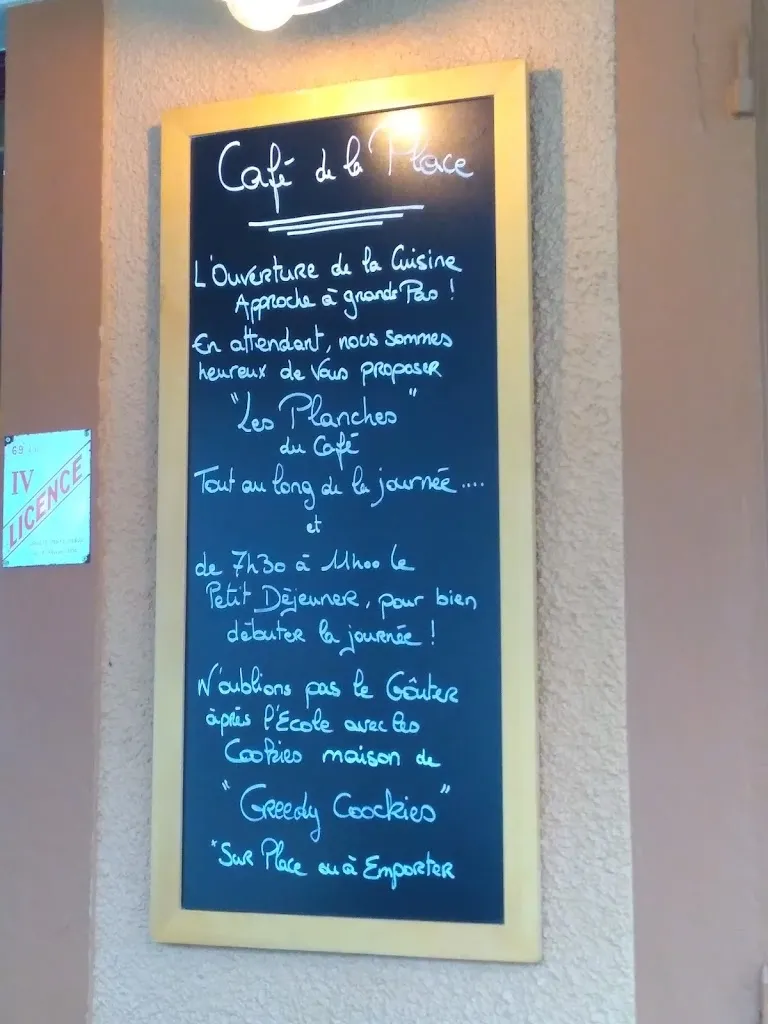 Café de la Place
L'Ouverture de la Cuisine
Approche à grands Pas !
En attendant, nous sommes
heureux de vous proposer
"Les Planches"
du Café
Tout au long de la journée....
et
de 7h30 à 11h00 le
Petit Déjeuner, pour bien
débuter la journée !
N'oublions pas le Goûter
après l'Ecole avec les
Cookies maison de
"Greedy Coockies"
*Sur Place ou à Emporter
69
IV
LICENCE